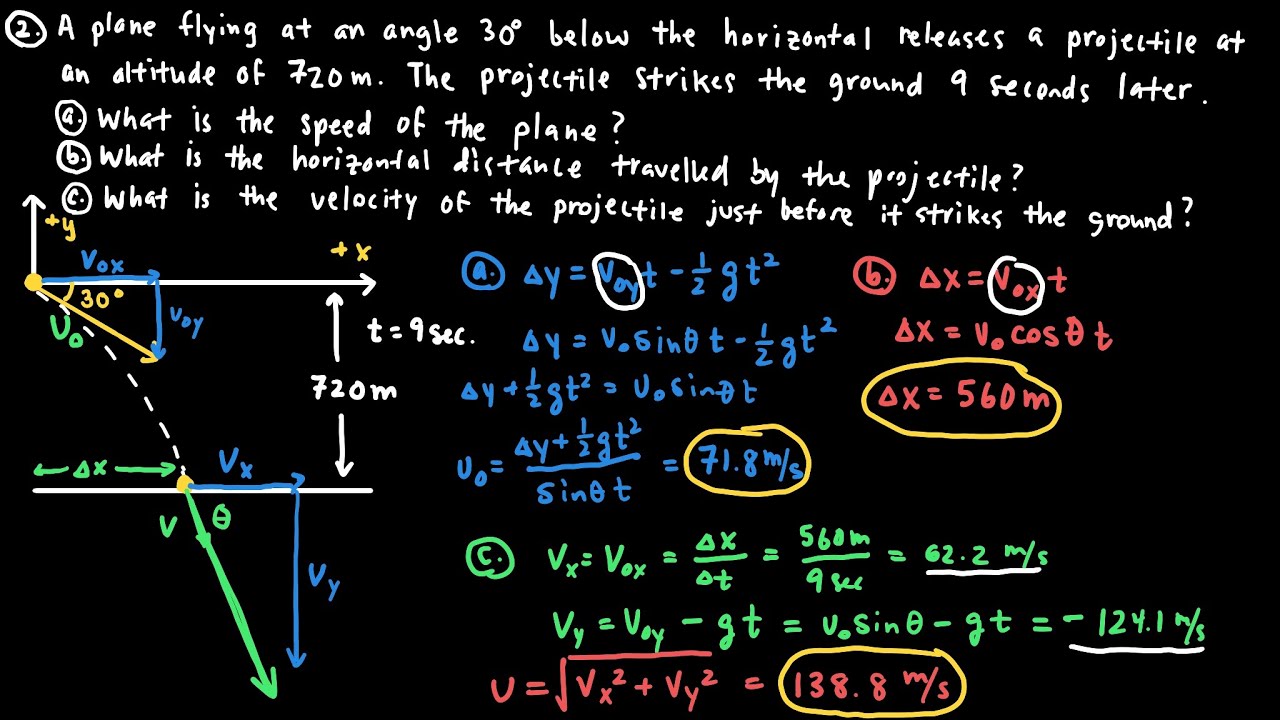 2. A plane flying at an angle 30° below the horizontal releases a projectile at
an altitude of 720m. The projectile strikes the ground 9 seconds later.
a. What is the speed of the plane?
b. What is the horizontal distance travelled by the projectile?
c. What is the velocity of the projectile just before it strikes the ground?
+y
+x
V₀ₓ
30°
V₀ᵧ
V₀
t = 9 sec.
720m
Δx
Vₓ
V
θ
Vᵧ
a. Δy = V₀ᵧt - ½gt²
Δy = V₀sinθt - ½gt²
Δy + ½gt² = V₀sinθt
V₀ = (Δy + ½gt²)/(sinθt) = 71.8 m/s
b. Δx = V₀ₓt
Δx = V₀cosθt
Δx = 560m
c. Vₓ = V₀ₓ = Δx/Δt = 560m/9sec = 62.2 m/s
Vᵧ = V₀ᵧ - gt = V₀sinθ - gt = -124.1 m/s
V = √(Vₓ² + Vᵧ²) = 138.8 m/s